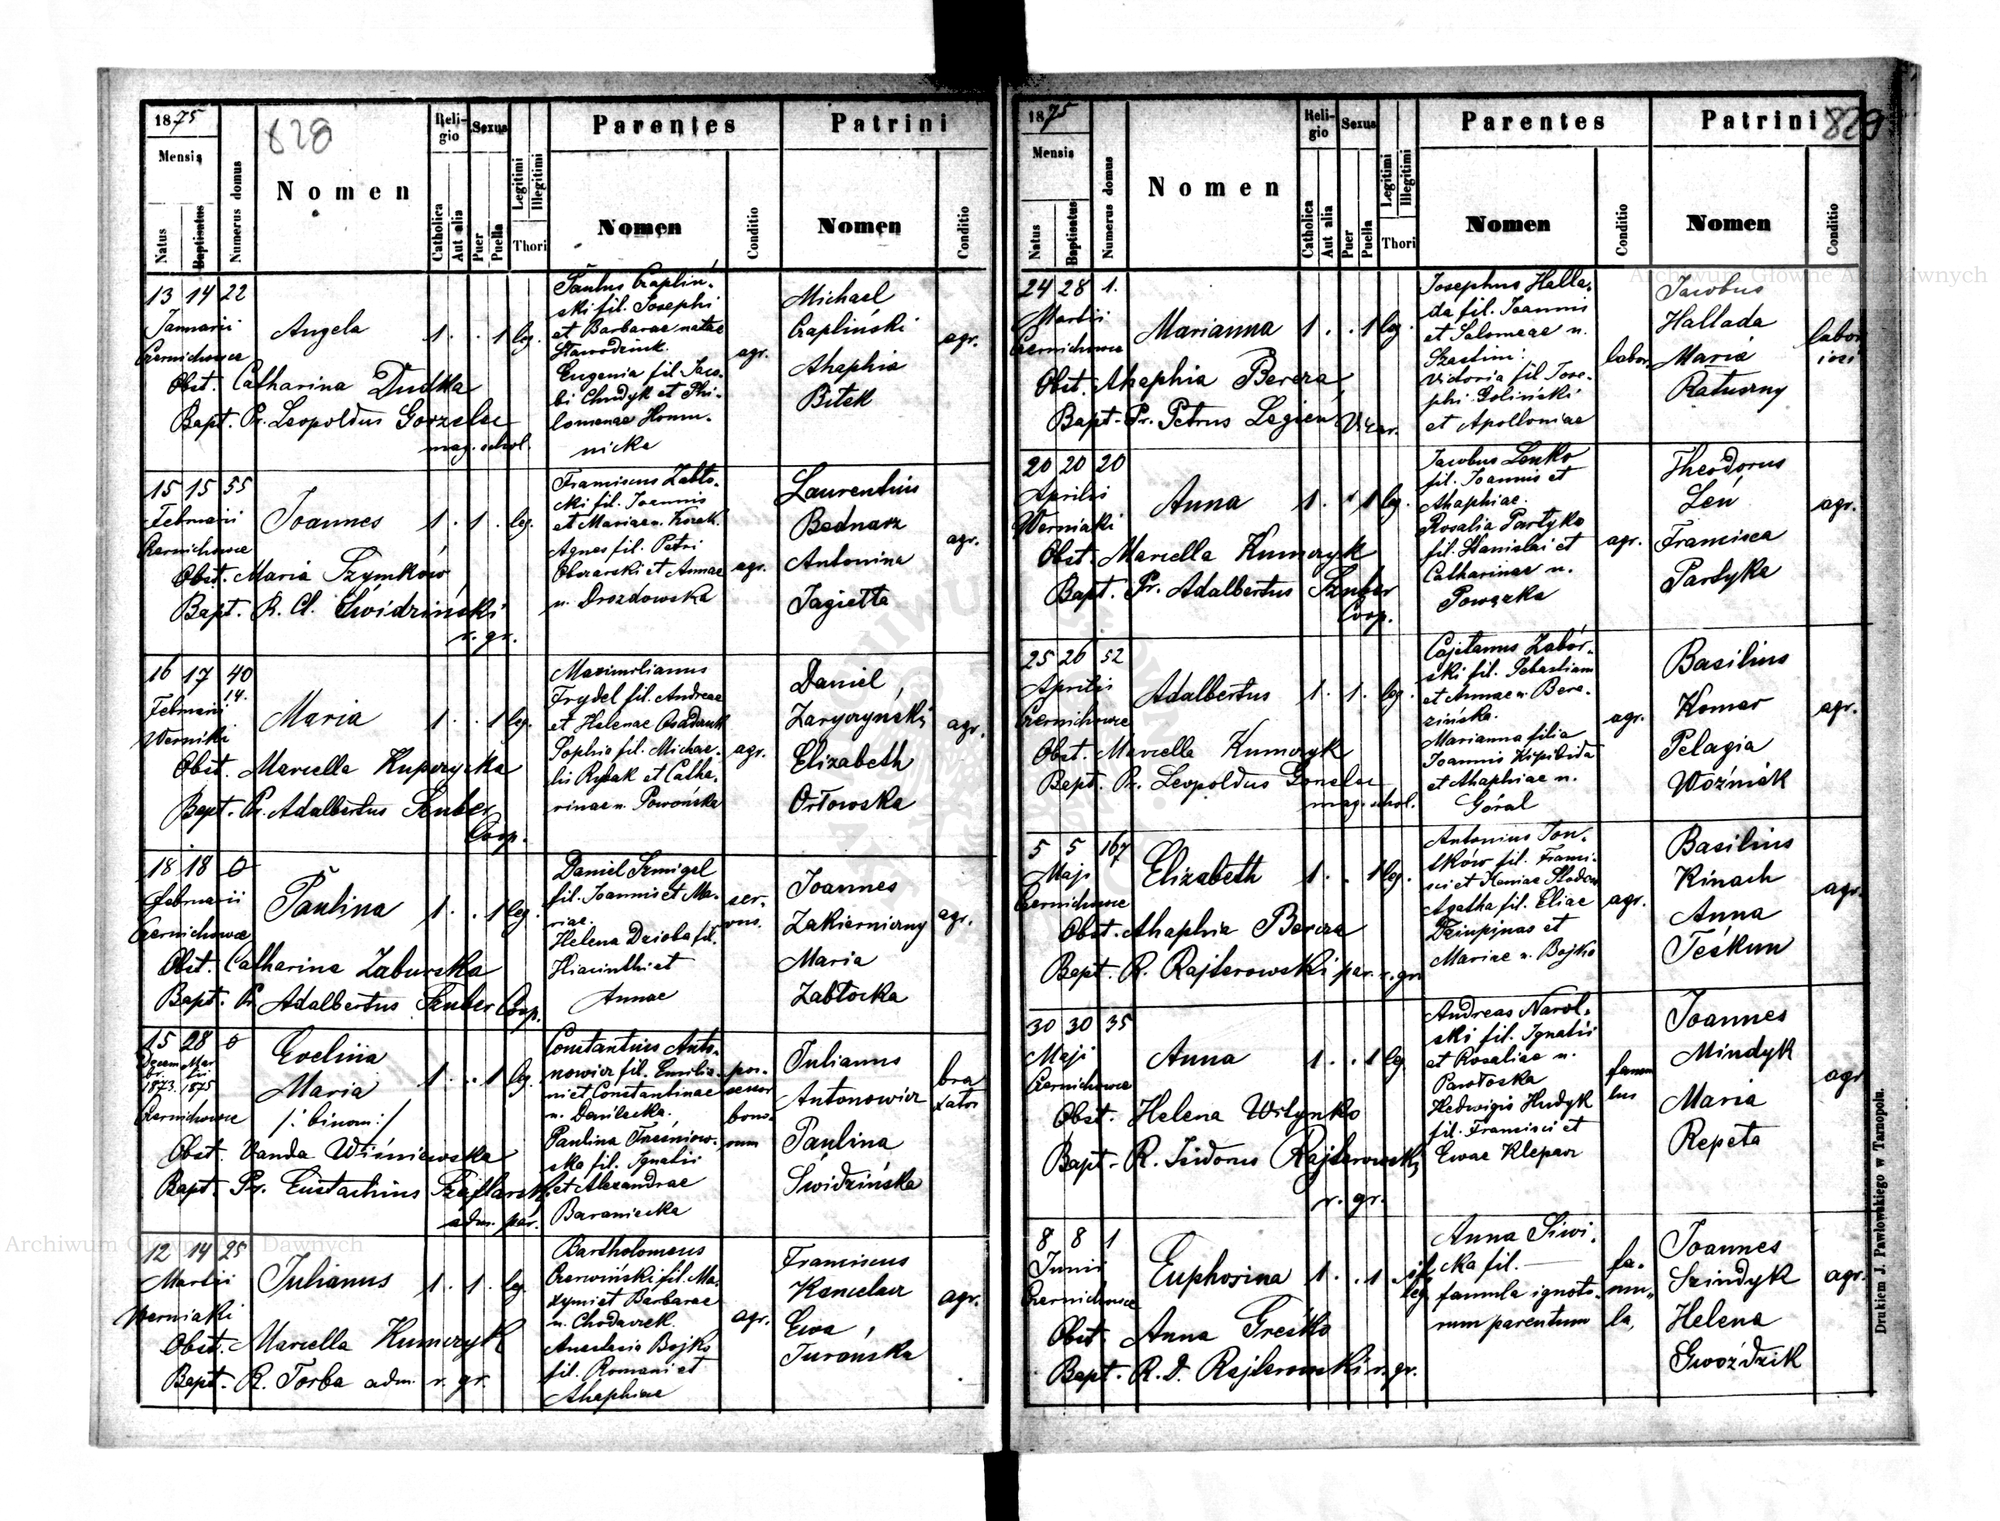 1875
828
Mensis
Natus
Baptisatus
Numerus domus
Nomen
Religio
Catholica
Aut alia
Sexus
Puer
Puella
Legitimi
Illegitimi
Thori
Parentes
Nomen
Conditio
Patrini
Nomen
Conditio
13 14 22
Januarii
Czernichowce
Angela
1 . . 1 leg.
Obst. Catharina Dudka
Bapt. Pr. Leopoldus Gorzelec
mag. schol.
Paulus Czapliń-
ski fil. Josephi
et Barbarae natae
Eugenia fil. Jaco-
bi Chudyk et Phi-
lomenae Homu-
nicka
agr.
Michael
Czapliński
Ahaphia
Bitek
agr.
15 15 55
Februarii
Czernichowce
Joannes
1 . 1 . leg.
Obst. Maria Szymków
Bapt. R. Cl. Swidziński
r. gr.
Franciscus Zabło-
cki fil. Joannis
et Mariae n. Kozak.
Agnes fil. Petri
Obezarski et Annae
n. Drozdowska
agr.
Laurentius
Bednarz
Antonina
Jagiełła
agr.
16 17 40
14.
Februarii
Werniaki
Maria
1 . . 1 leg.
Obst. Marcella Kupczycka
Bapt. Pr. Adalbertus Szuber
Coop.
Maximilianus
Frydel fil. Andreae
et Helenae Osadczuk
Sophia fil. Michae-
lis Rybak et Catha-
rinae n. Powońska
agr.
Daniel
Zaryczyński
Elizabeth
Orłowska
agr.
18 18 0
Februarii
Czernichowce
Paulina
1 . . 1 leg.
Obst. Catharina Zaburska
Bapt. Pr. Adalbertus Szuber Coop.
Daniel Szmigel
fil. Joannis et Ma-
riae.
Helena Dzioba fil.
Hiacinthi et
Annae
ser-
vus.
Joannes
Zakierniczny
Maria
Zabłocka
agr.
15 28 0
Decem Mar
br. tii
1873. 1875
Czernichowce
Evelina
Maria
/: binom :/
1 . . 1 leg.
Obst. Vanda Wiśniewska
Bapt. Pr. Eustachius Szaflarski
adm. par.
Constantius Anto-
nowicz fil. Emilia-
ni et Constantinae
n. Danilecka.
Paulina Trześniow-
ska fil. Ignatii
et Alexandrae
Baraniecka
pos-
sessor
bono-
rum
Julianus
Antonowicz
Paulina
Świdzińska
12 14 25
Martii
Werniaki
Julianus
1 . 1 . leg.
Obst. Marcella Kumczyk
Bapt. R. Torba adm. r. gr.
Bartholomeus
Czerwiński fil. Ma-
xymi et Barbarae
n. Chodaczek.
Anastasia Bojko
fil. Romani et
Ahaphiae
agr.
Franciscus
Kanclarz
Ewa
Turańska
agr.
1875
Mensis
Natus
Baptisatus
Numerus domus
Nomen
Religio
Catholica
Aut alia
Sexus
Puer
Puella
Legitimi
Illegitimi
Thori
Parentes
Nomen
Conditio
Patrini
829
Nomen
Conditio
24 28 1.
Martii
Czernichowce
Marianna
1 . . 1 leg.
Obst. Ahaphia Bereza
Bapt. Pr. Petrus Legień Vicar.
Josephus Halla-
da fil. Joannis
et Salomeae n.
Victoria fil. Jose-
phi Goliński
et Apolloniae
labor.
Jacobus
Hallada
Maria
Ratuszny
labor
iosi
20 20 20
Aprilis
Werniaki
Anna
1 . . 1 leg.
Obst. Marcella Kumczyk
Bapt. Pr. Adalbertus Szuber
Coop.
Jacobus Lenko
fil. Joannis et
Ahaphiae.
Rosalia Partyka
fil. Stanislai et
Catharinae n.
Powązka
agr.
Theodorus
Leń
Francisca
Partyka
agr.
25 26 52
Aprilis
Czernichowce
Adalbertus
1 . 1 . leg.
Obst. Marcella Kumczyk
Bapt. Pr. Leopoldus Gorzelec
mag. schol.
Cajetanus Zabor-
ski fil. Sebastiani
et Annae n. Bere-
zińska.
Marianna filia
Joannis Kipibida
et Ahaphiae n.
Góral
agr.
Basilius
Komar
Pelagia
Woźniak
agr.
5 5 167
Maji
Czernichowce
Elizabeth
1 . . 1 leg.
Obst. Ahaphia Bereza
Bapt. R. Rajterowski par. r. gr.
Antonius Ton-
ików fil. Franci-
sci et Xeniae
Agatha fil. Eliae
et
Mariae n. Bojko
agr.
Basilius
Kinach
Anna
Teśkun
agr.
30 30 35
Maji
Czernichowce
Anna
1 . . 1 leg.
Obst. Helena Wilynko
Bapt. R. Isidorus Rajterowski
r. gr.
Andreas Narol-
ski fil. Ignatii
et Rosaliae n.
Pawłoska
Hedwigis Hudyk
fil. Francisci et
Evae Klepacz
famu
lus
Joannes
Mindyk
Maria
Repeta
agr
8 8 1
Junii
Czernichowce
Euphosina
1 . . 1 il
leg
Obst. Anna Greśko
Bapt. R. D. Rajterowski r. gr.
Anna Siwi-
cka fil. —
famula ignoto-
rum parentum
fa-
mu-
la,
Joannes
Szindyk
Helena
Gwoździk
agr.
Drukiem J. Pawłowskiego w Tarnopolu.
Archiwum Główne Akt Dawnych
Archiwum Główne Akt Dawnych